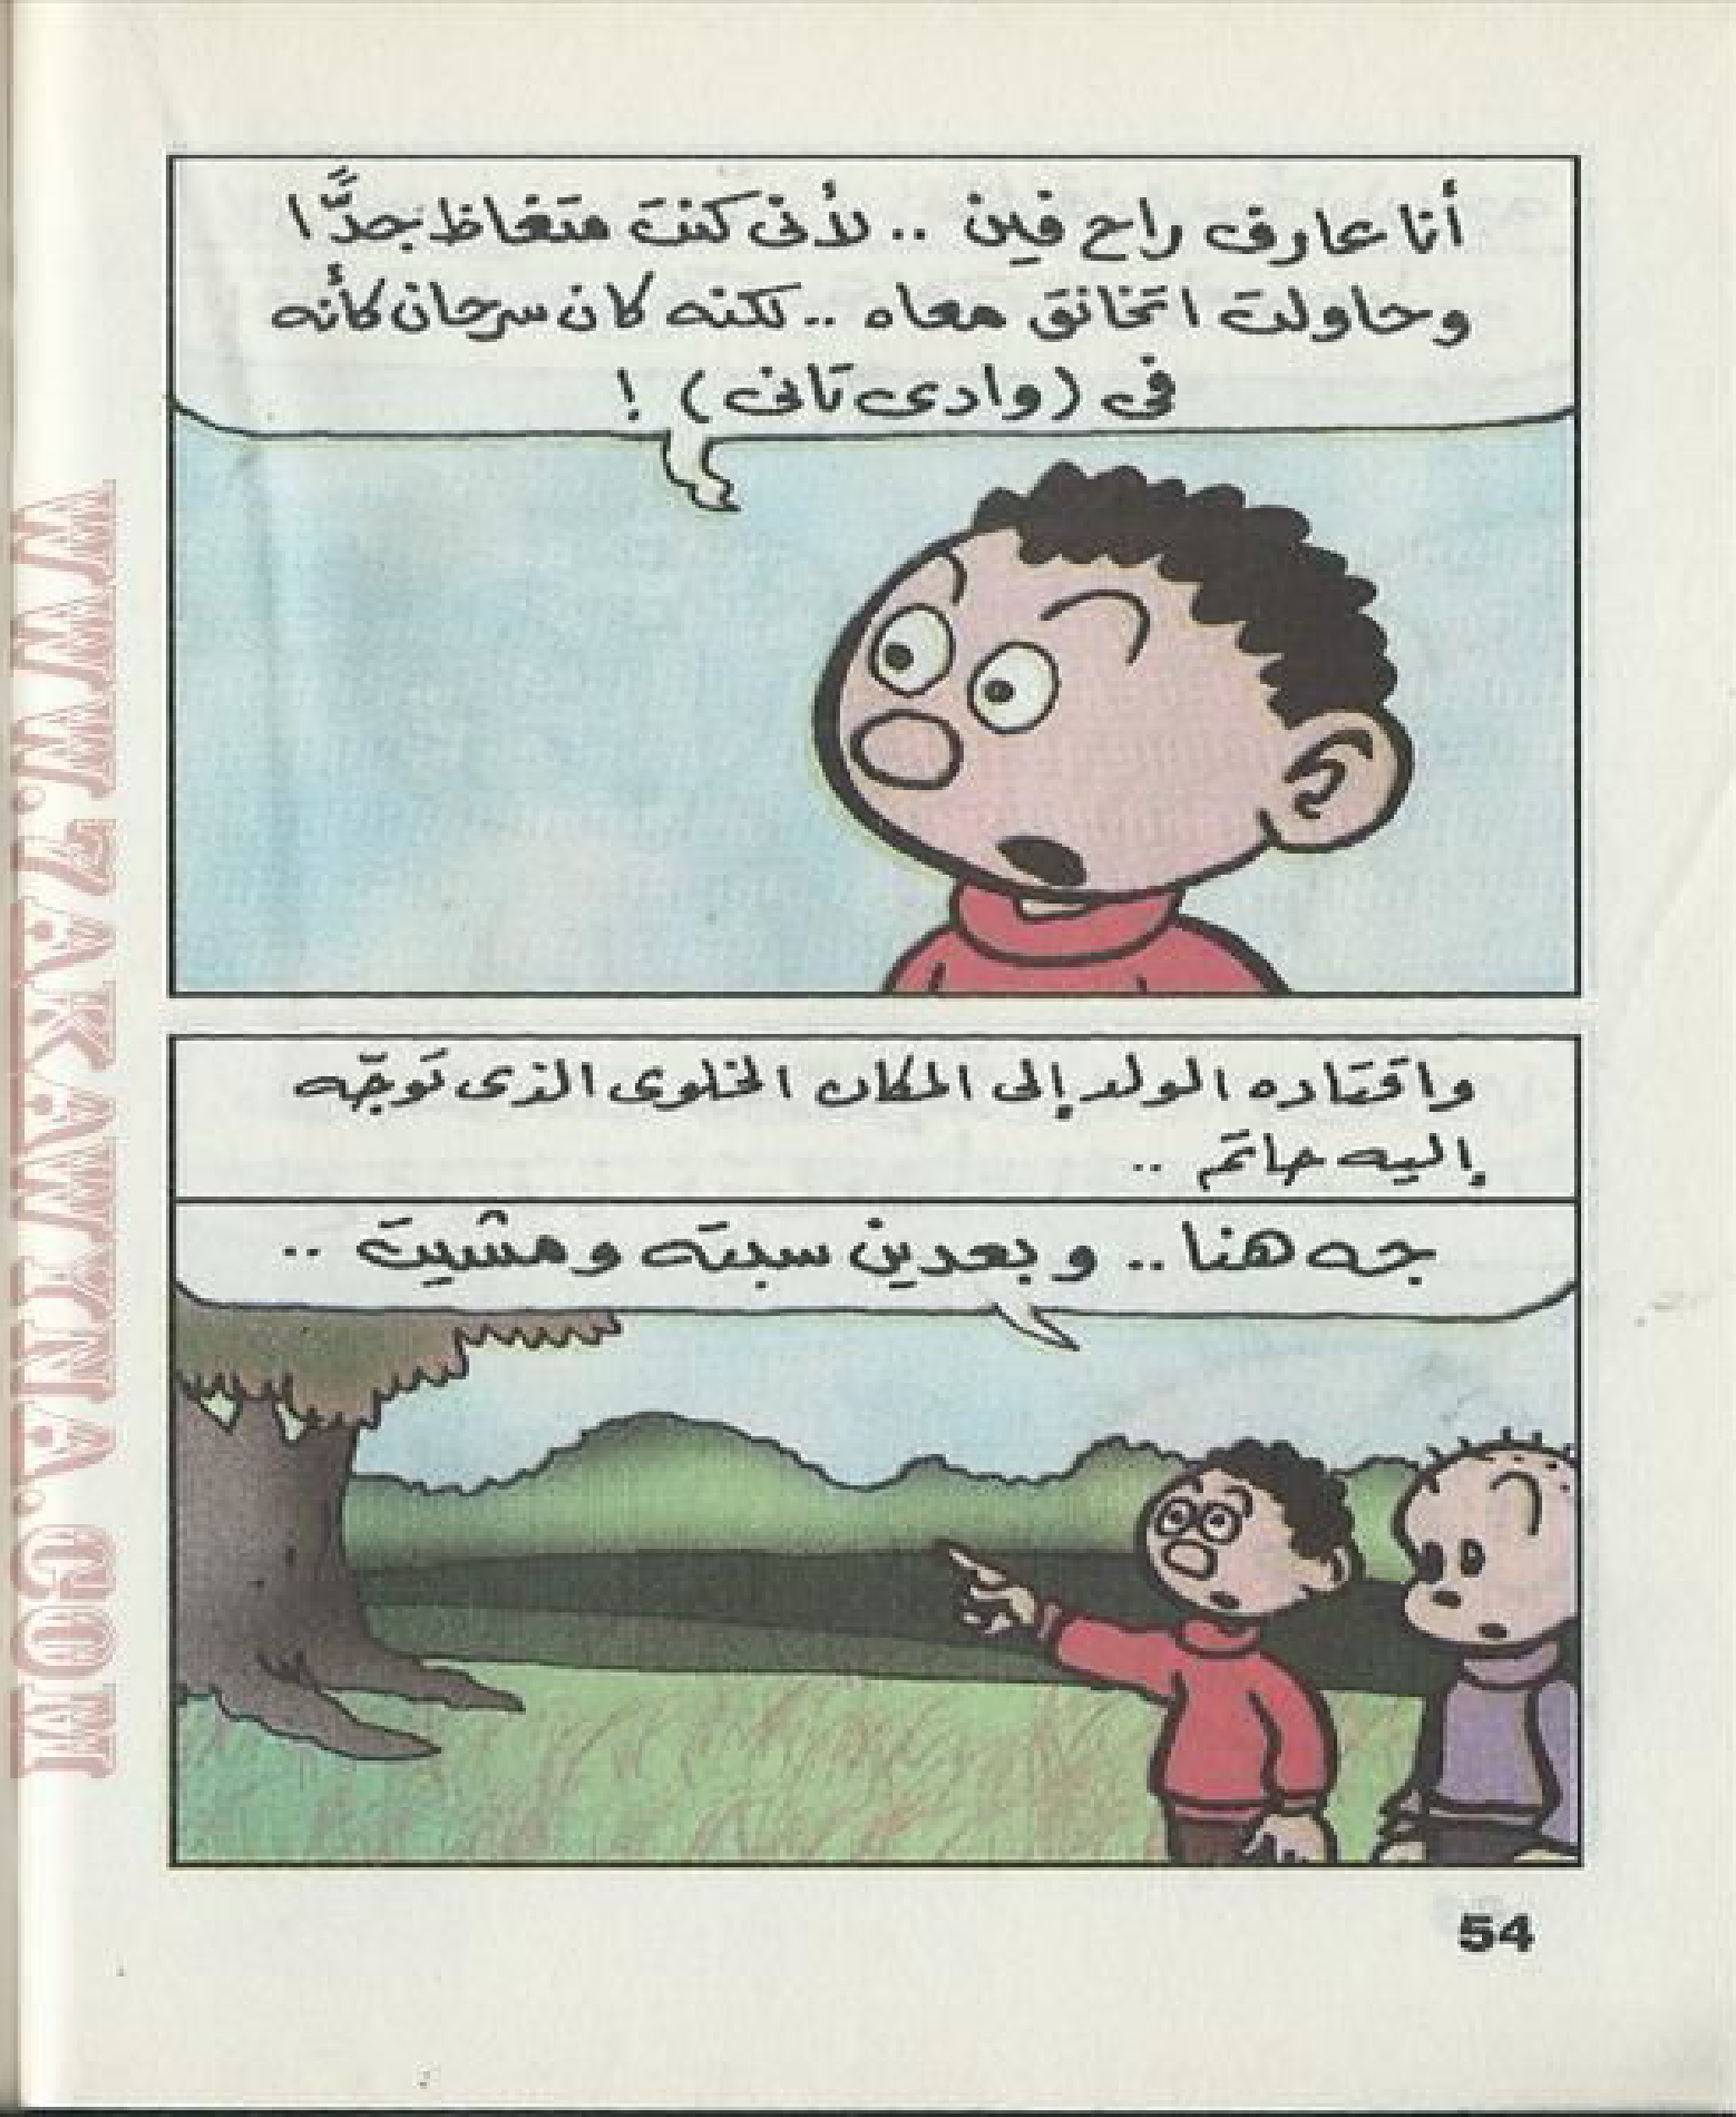 أنا عارف راح فين .. لأنى كنت متغاظ جدًّا
وحاولت اتخانق معاه .. لكنه كان سرحان كأنه
فى (وادى تانى) !
واقتاده الولد إلى المكان الخلوى الذى توجّه
إليه حاتم ..
جه هنا .. وبعدين سبته ومشيت ..
54
WWW.7AKAWINA.COM